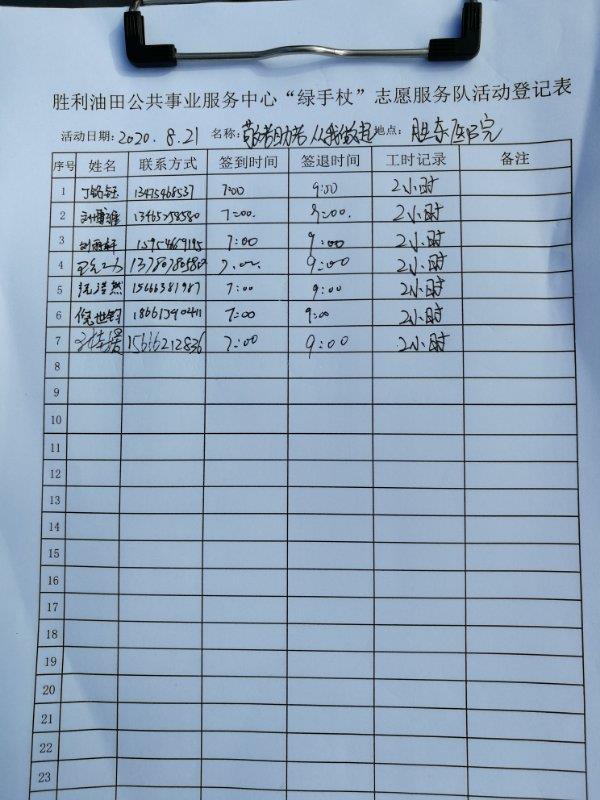 胜利油田公共事业服务中心“绿手杖”志愿服务队活动登记表
活动日期：2020.8.21 名称：敬老助老从我做起 地点：胜东医院
序号 姓名 联系方式 签到时间 签退时间 工时记录 备注
1 丁铭钰 13475468537 7:00 9:00 2小时
2 13465258580 7:00. 9:00. 2小时
3 15954669195 7:00 9:00 2小时
4 7:00. 9:00 2小时
5 15666381987 7:00 9:00 2小时
6 倪世钧 7:00 9:00 2小时
7 15666212836 7:00 9:00 2小时
8
9
10
11
12
13
14
15
16
17
18
19
20
21
22
23